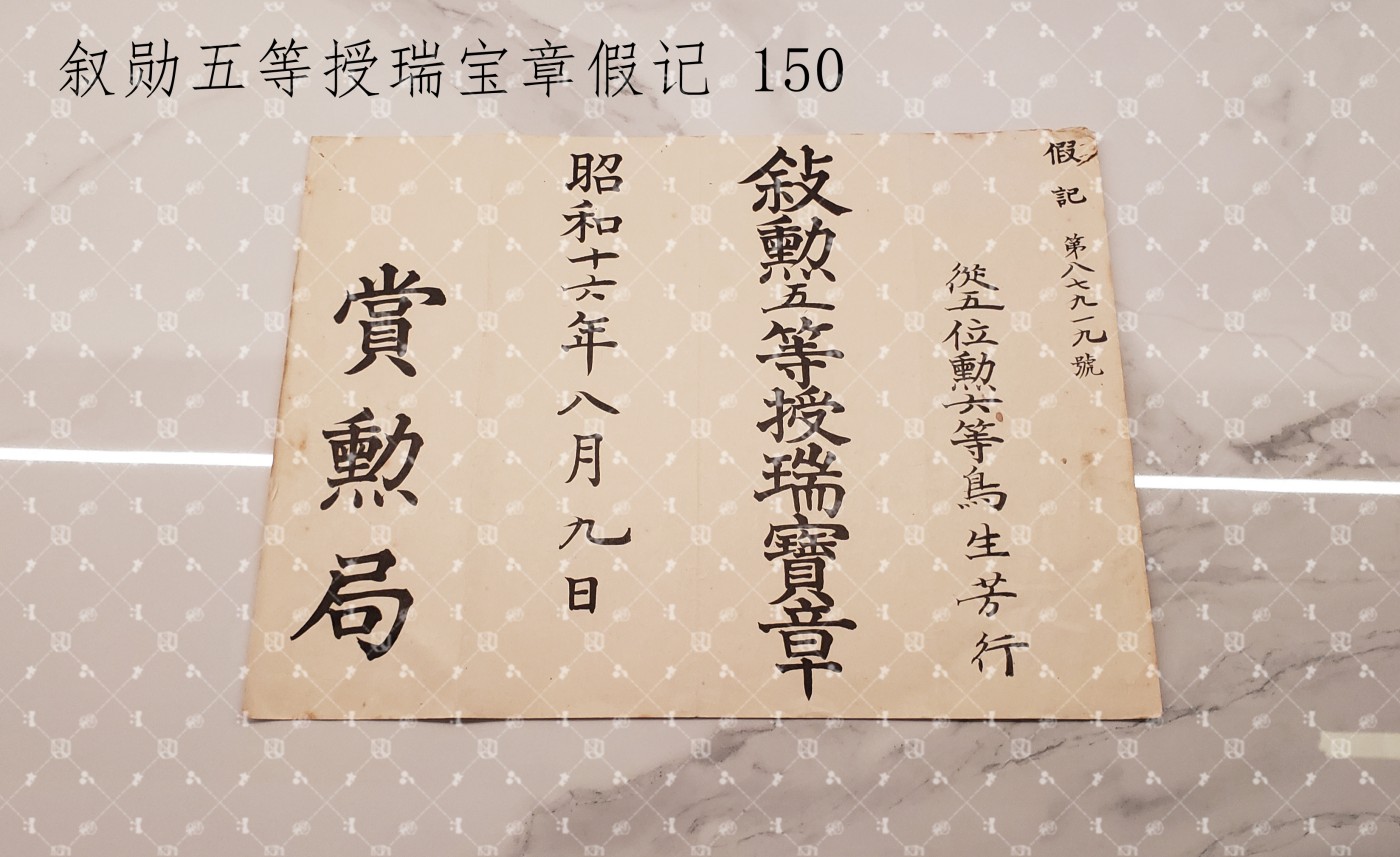 叙勋五等授瑞宝章假记 150
假記 第八七九一九號
從五位勳六等鳥生芳行
敍勳五等授瑞寶章
昭和十六年八月九日
賞勳局